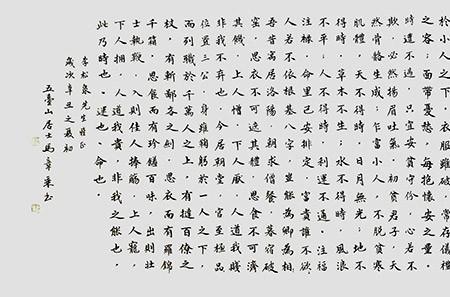 於小人之下，衣服雖破，常存儀禮
之容；面帶憂愁，每抱懷安之量。
時遭不遇，只宜安貧守份；心若不
欺，必然揚眉吐氣。初貧君子，天
然骨骼生成；乍富小人，不脫貧寒
肌體。天不得時，日月無光；地不
得時，草木不生；水不得時，風浪
不平；人不得時，利運不通。注福
注祿，命裏已安排定，富貴誰不欲，
人若不依根基八字，豈能為卿為相。
昔寓居洛陽，朝求僧餐，暮宿破
窑，思衣不可遮其體，思食不可濟
其饑，上人憎，下人厭，人道我賤，
非我不棄也。今居朝堂，官至極品，
位置三公，身雖鞠躬於一人之下，
而列職於千萬人之上，有撻百僚之
杖，有斬鄙吝之劍，思衣而有羅錦
千箱，思食而有珍饈百味，出則壯
士執鞭，入則佳人捧觴，上人寵，
下人擁，人道我貴，非我之能也，
此乃時也、運也、命也
李松泉先生雅正
歲次辛丑之夏初
五臺山居士馬章書